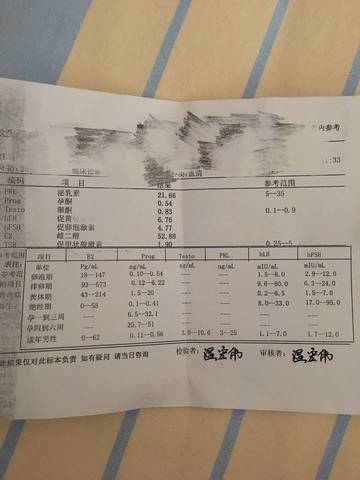 内参考
11:33
临床诊 血清
编码 项目 结果 参考范围
PRL 泌乳素 21.66 5--35
Prog 孕酮 0.54
Testo 睾酮 0.83 0.1--0.9
hLH 促黄 6.76
hFSH 促卵泡激素 4.77
E2 雌二醇 52.88
TSH 促甲状腺激素 1.90 0.25--5
项目 E2 Prog Testo PRL hLH hFSH
单位 Pg/mL ng/mL ng/mL ng/mL mIU/mL mIU/mL
卵泡期 18--147 0.10--0.54 --- --- 1.5--8.0 2.9--12.0
排卵期 93--573 0.12--6.22 --- --- 9.6--80.0 6.3--24.0
黄体期 43--214 1.5--20 --- --- 0.2--6.5 1.5--7.0
绝经期 0--58 0.1--0.41 --- --- 8.0--33.0 17.0--95.0
孕一到三周 6.5--32.1
孕四到六周 20.7--51
成年男性 0--62 0.11--0.56 3.0--10.6 3--25 1.1--7.0 1.7--12.0
此结果仅对此标本负责 如有疑问 请当日咨询 检验者: 审核者: